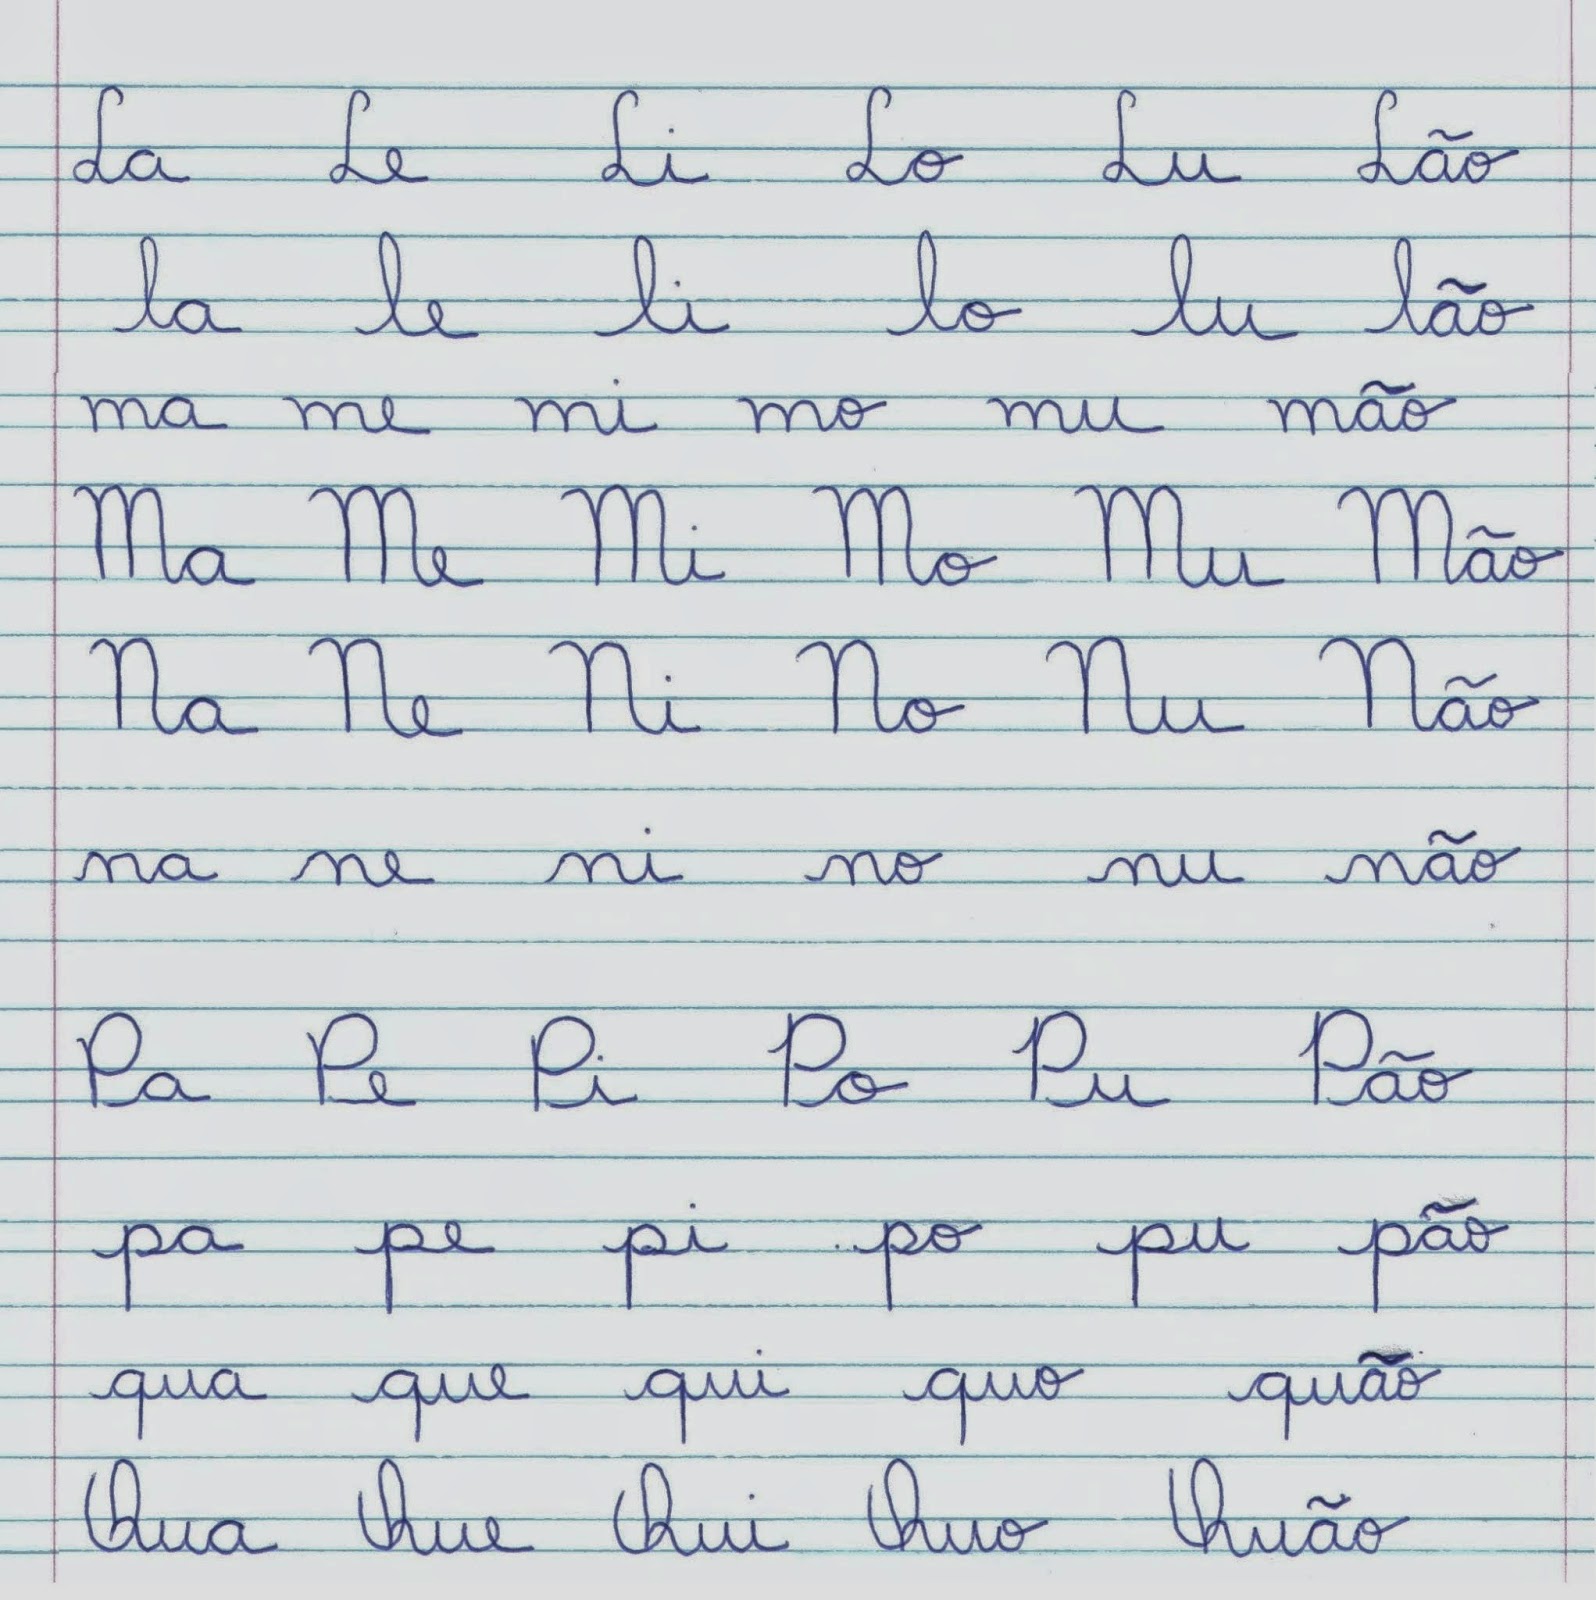 La Le Li Lo Lu Lão
la le li lo lu lão
ma me mi mo mu mão
Ma Me Mi Mo Mu Mão
Na Ne Ni No Nu Não
na ne ni no nu não
Pa Pe Pi Po Pu Pão
pa pe pi po pu pão
qua que qui quo quão
Qua Que Qui Quo Quão